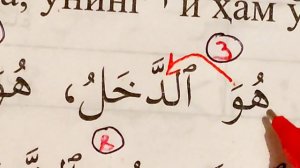 а, унинг и ҳам у
3
هُوَ ٱلدَّخَلُ، هُوَ
R